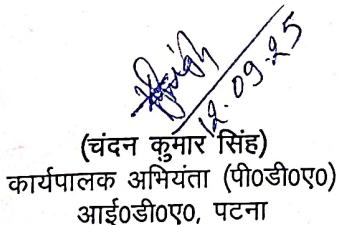 12.09.25
(चंदन कुमार सिंह)
कार्यपालक अभियंता (पी0डी0ए0)
आई0डी0ए0, पटना